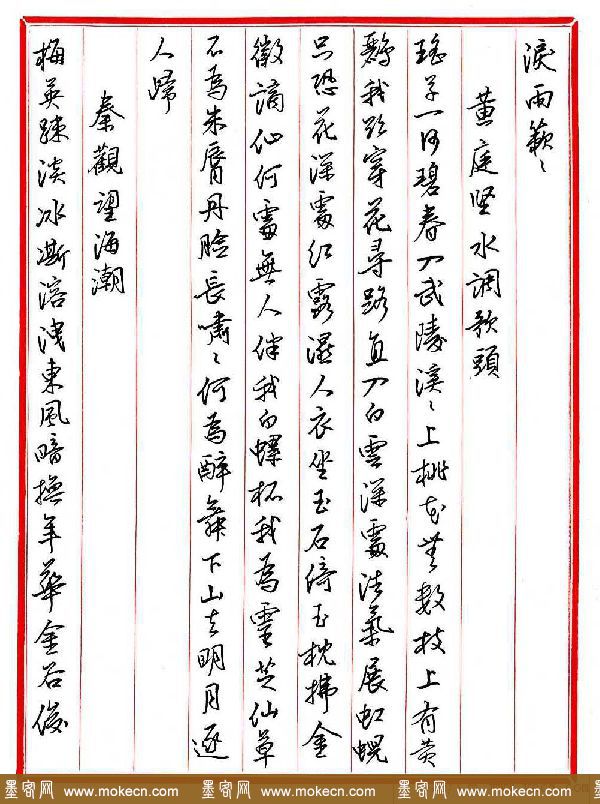 淚雨簌々
黄庭坚水调歌頭
瑶草一何碧春入武陵溪々上桃花無數枝上有黄
鸝我欲穿花尋路直入白雲深處浩氣展虹蜺
只恐花深處红露濕人衣坐玉石倚玉枕拂金
徽謫仙何處無人伴我白螺杯我為靈芝仙草
不為朱脣丹臉長嘯々何為醉舞下山去明月逐
人歸
秦觀望海潮
梅英疎淡冰澌溶洩東風暗换年華金谷俊
墨客网 www.mokecn.com 墨客网 www.mokecn.com 墨客网 www.mokecn.com